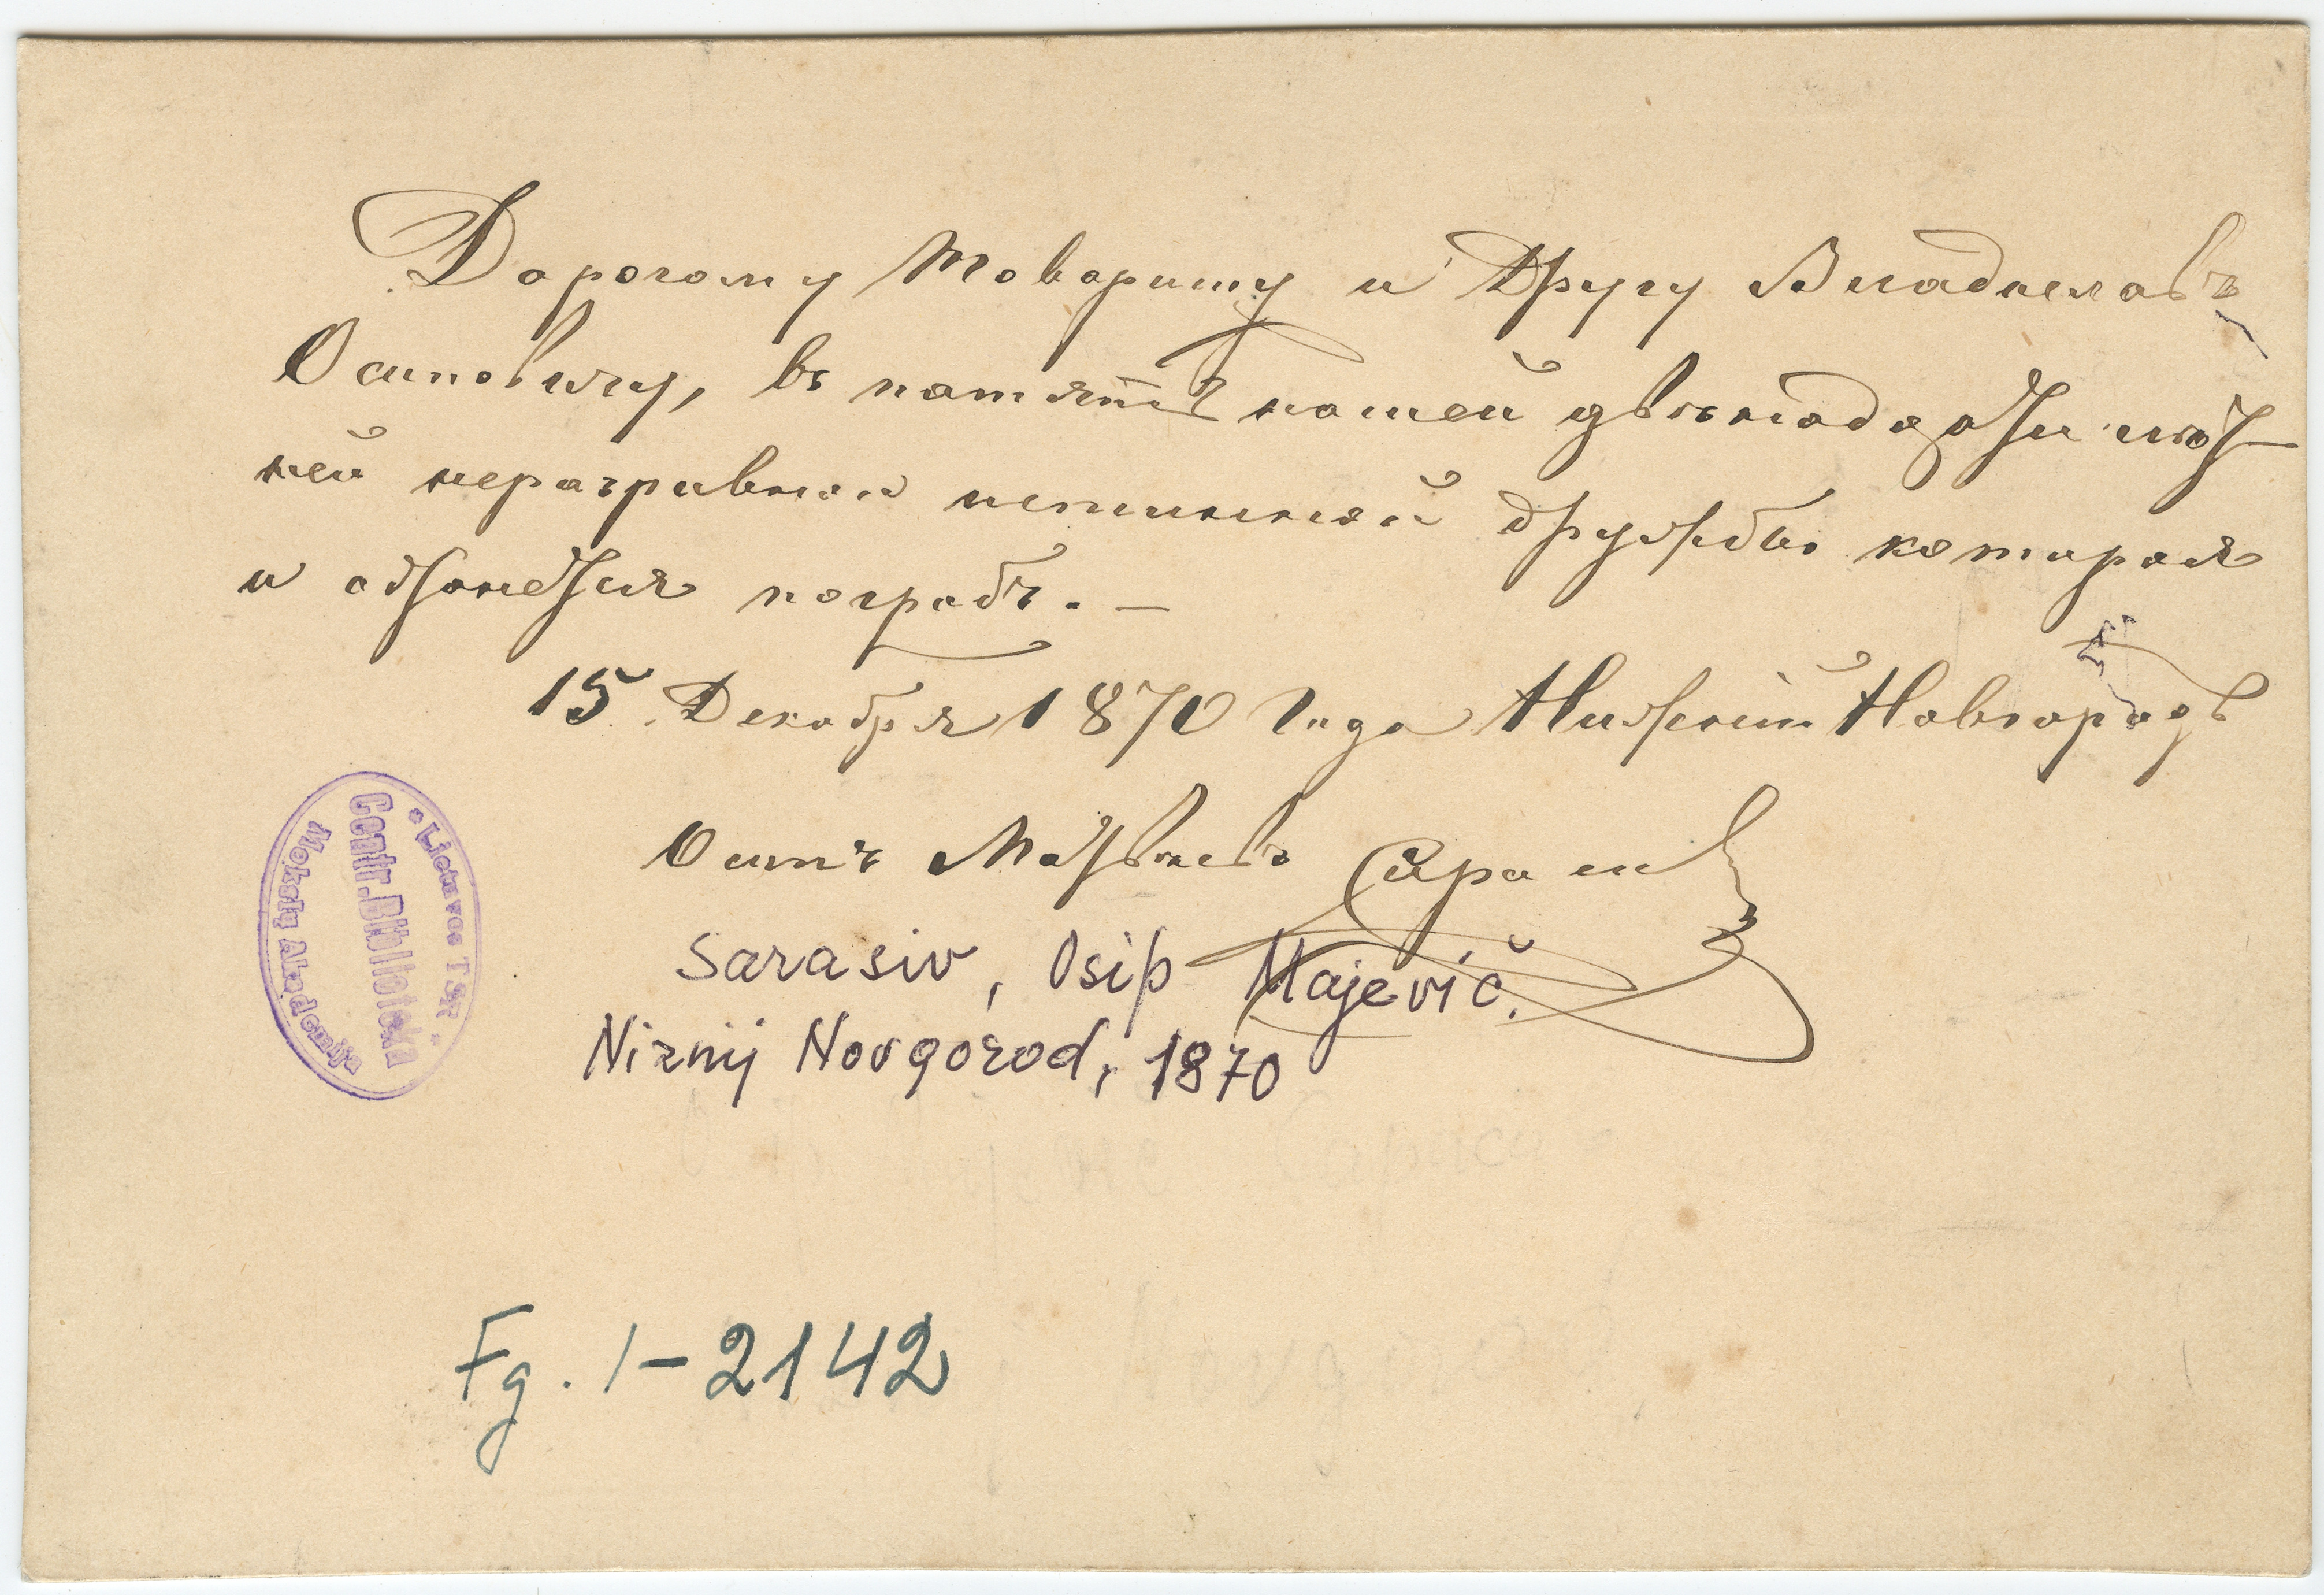 Дорогому Товарищу и Другу Владиславъ
Осиповичу, въ память нашей
ней неразривной истинной дружбы которая
и остонется погробъ. —
15 Декабря 1870 Года Нижній Новгородъ
Осипъ
Sarasiv, Osip Majevič.
Nižnij Novgorod, 1870
• Lietuvos TSR •
Centr. Biblioteka
Mokslų Akademija
Fg. 1-2142